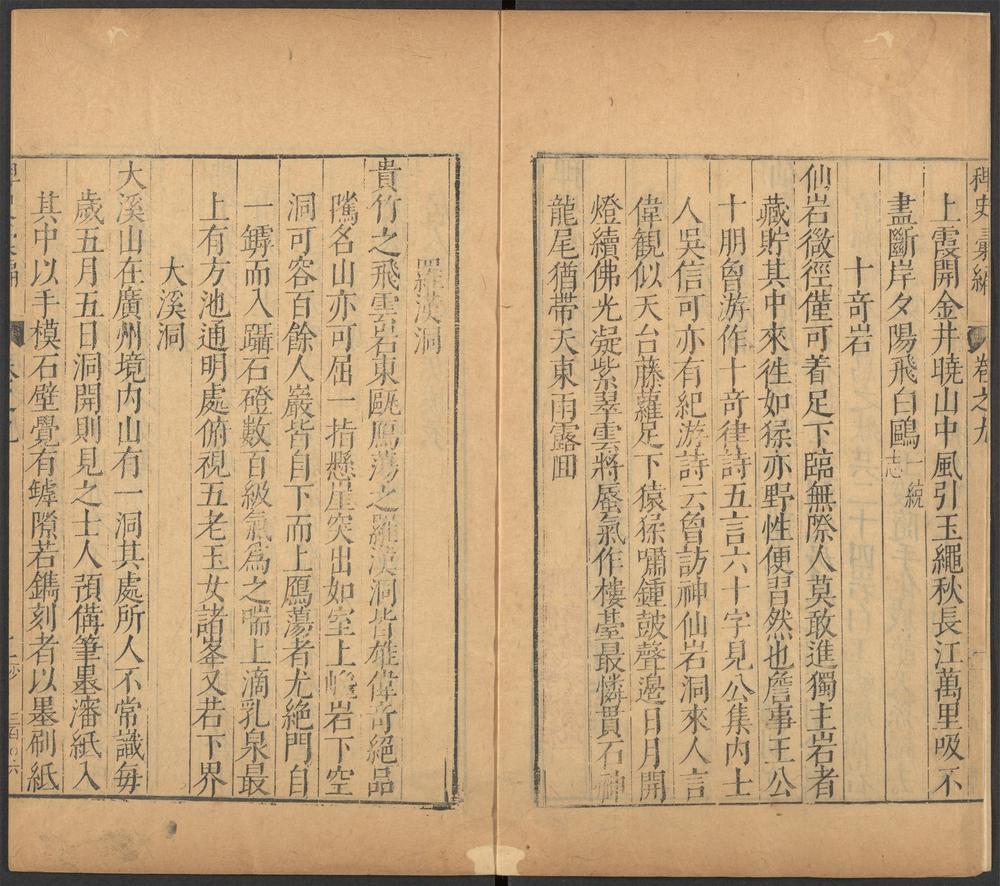 稗史彙編 卷之九
上霞開金井曉山中風引玉繩秋長江萬里吸不
盡斷岸夕陽飛白鷗一統志
十奇岩
仙岩微徑僅可着足下臨無際人莫敢進獨主岩者
藏貯其中來徃如猱亦野性便習然也詹事王公
十朋曾游作十奇律詩五言六十字見公集内士
人吳信可亦有紀游詩云曾訪神仙岩洞來人言
偉観似天台藤蘿足下猿猱嘯鍾皷聲邊日月開
燈續佛光凝紫翠雲將蜃氣作樓䑓最憐貫石神
龍尾猶帶天東雨露回
羅漢洞
貴竹之飛雲岩東甌鴈蕩之羅漢洞皆雄偉奇絕品
隲名山亦可屈一指懸崖突出如室上巉岩下空
洞可容百餘人巖皆自下而上鴈蕩者尤絕門自
一罅而入躡石磴數百級氣爲之喘上滴乳泉最
上有方池通明處俯視五老玉女諸峯又若下界
大溪洞
大溪山在廣州境内山有一洞其處所人不常識毎
歲五月五日洞開則見之士人預俻筆墨瀋紙入
其中以手模石壁覺有罅隙若鐫刻者以墨刷紙